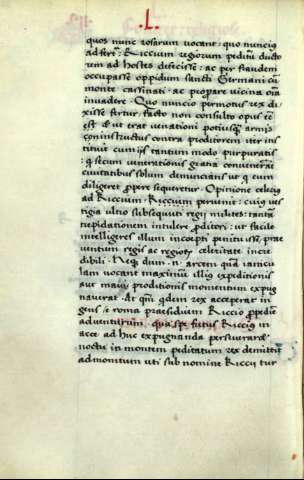 .L.
quos nunc rosarum vocant: quo nuncius
adfert: Riccium regiorum peditum ducto
rem ad hostes defecisse: ac per fraudem
occupasse oppidum sancti Germani cum
monte cassinati: ac propare vicina omnia
invadere. Quo nuncio permotus rex di
xisse fertur. facto non consulto opus
est et ut erat venationi potiusque armis
coninstructus contra proditorem iter ins
tituit cum iis tantum modo purpuratis
qui secum venerationis gratia convenerant
civitatibus solum denuncians ut quem
diligeret propere sequeretur. Opinione celeius
ad Riccium Riccium pervenit: cuius ves
tigia ultro subsequuti regii milites: tantam
trepidationem intulere proditori: ut facile
intelligeres illum incoepti penituisse: prae
ventum regis ac celeritate incre
dibili. Neque dum arcem quam
vocant maximum illius expeditionis
aut maius proditionis momentum expug
naverat. At quidem rex acceperat in
gens e roma praesidium Riccio propediem
adventurum. qua spe fretus Riccius in
arce ad huc expugnanda perseverare
noctu in montem peditatum rex demittit
admonitum uti sub nomine Riccii tur